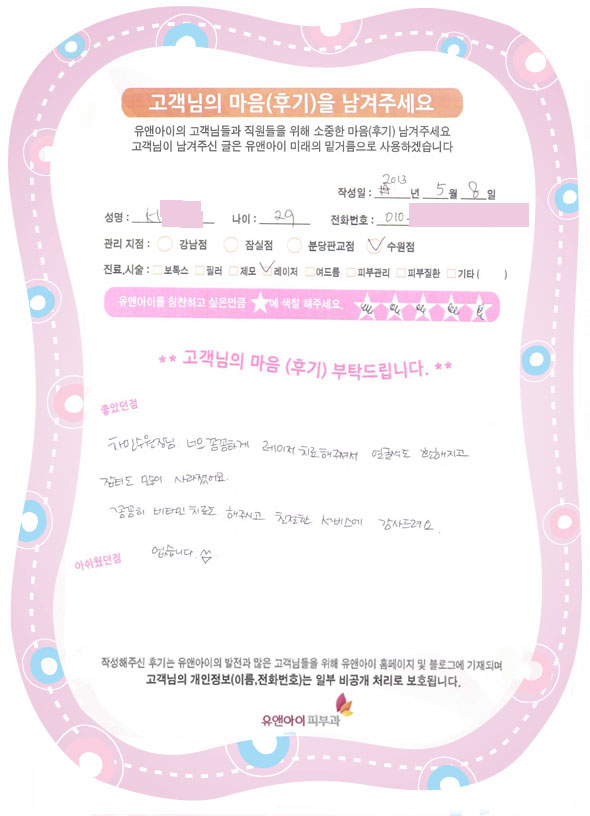 고객님의 마음(후기)을 남겨주세요
유앤아이의 고객님들과 직원들을 위해 소중한 마음(후기) 남겨주세요
고객님이 남겨주신 글은 유앤아이 미래의 밑거름으로 사용하겠습니다
작성일 : 2013 년 5 월 8 일
성명 : 나이 : 29 전화번호 : 010-
관리 지점 : 강남점 잠실점 분당판교점 수원점
진료,시술 : 보톡스 필러 제모 레이저 여드름 피부관리 피부질환 기타 ( )
유앤아이를 칭찬하고 싶은만큼 ★에 색칠 해주세요.
** 고객님의 마음 (후기) 부탁드립니다. **
좋았던점
차민수원장님 너무 꼼꼼하게 레이저 치료해주셔서 얼굴색도 환해지고
잡티도 많이 사라졌어요.
꼼꼼히 비타민 치료도 해주시고 친절한 서비스에 감사드려요.
아쉬웠던점 없습니다
작성해주신 후기는 유앤아이의 발전과 많은 고객님들을 위해 유앤아이 홈페이지 및 블로그에 기재되며
고객님의 개인정보(이름,전화번호)는 일부 비공개 처리로 보호됩니다.
유앤아이피부과